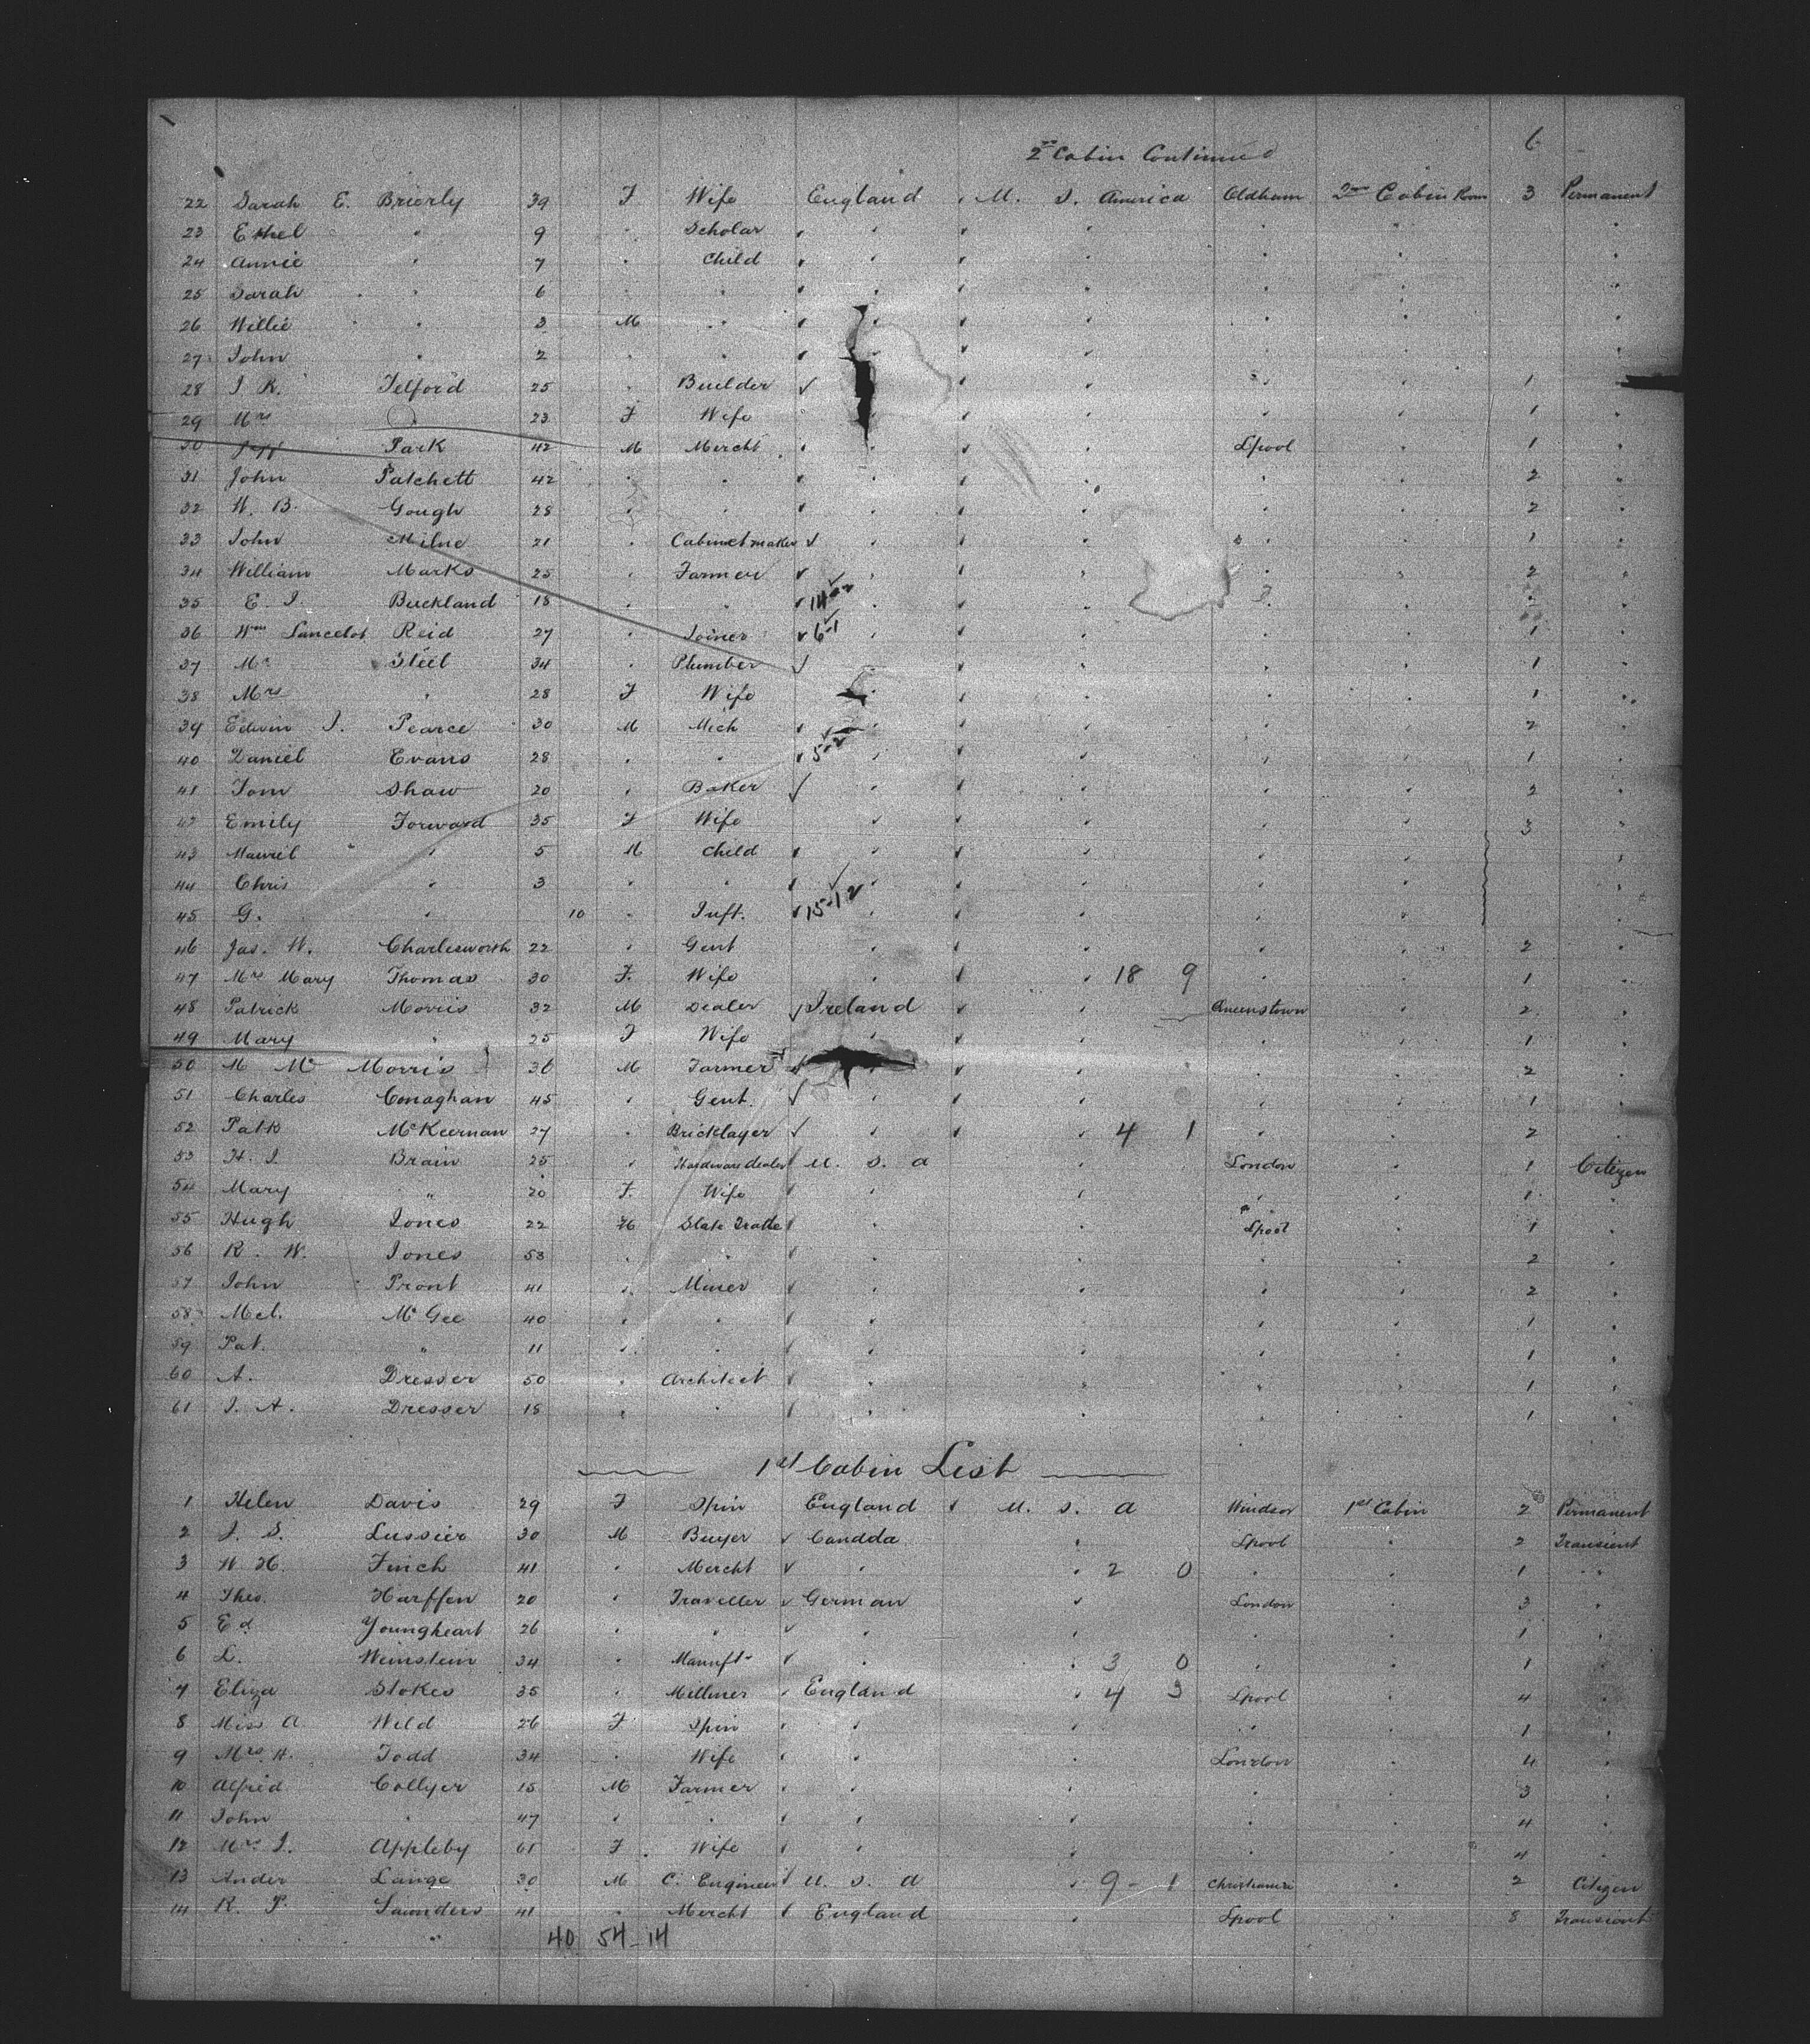 6
2nd Cabin Continued
22 Sarah E. Brierly 39 F Wife England U. S. America Oldham 2nd Cabin Room 3 Permanent
23 Ethel " 9 " Scholar " " "
24 Annie " 7 " Child " " "
25 Sarah " 6 " " " " "
26 Willie " 3 M " " " "
27 John " 2 " " " " "
28 J. R. Telford 25 " Builder " " " " 1 "
29 Mrs " 23 F Wife " " " " 1 "
30 Park 42 M Mercht " " Lpool " 1 "
31 John Patchett 42 " " " " " " 2 "
32 W. B. Gough 28 " " " " " " 2 "
33 John Milne 21 " Cabinet maker " " " " 1 "
34 William Marks 25 " Farmer " " " " 2 "
35 E. J. Buckland 18 " " 14-2 " " " "
36 Wm Lancelot Reid 27 " Joiner 6-1 " " " " 1 "
37 Mr Steel 34 " Plumber " " " " 1 "
38 Mrs " 28 F Wife " " " " 1 "
39 Edwin J. Pearce 30 M Mech " " " " 2 "
40 Daniel Evans 28 " " 5-2 " " " " 1 "
41 Tom Shaw 20 " Baker " " " " 2 "
42 Emily Forward 35 F Wife " " " " 3 "
43 " 5 M Child " " " " "
44 Chris " 3 " " " " " " "
45 G. " 10 " Inft. 15-12 " " " " "
46 Jas. W. Charlesworth 22 " Gent " " " " 2 "
47 Mrs Mary Thomas 30 F. Wife " " 18 9 " " 1 "
48 Patrick Morris 32 M Dealer Ireland " Queenstown " 2 "
49 Mary " 25 F Wife " " " " 1 "
50 M Mc Morris 36 M Farmer " " " " 2 "
51 Charles Conaghan 45 " Gent. " " " " 1 "
52 Patk McKeernan 27 " Bricklayer " " 4 1 " " 2 "
53 H. J. Brain 25 " Hardware dealer U. S. A " London " 1 Citizen
54 Mary " 20 F. Wife " " " " 1 "
55 Hugh Jones 22 M Slate Trade " " Lpool " 1 "
56 R. W. Jones 53 " " " " " " 2 "
57 John Pront 41 " Miner " " " " 2 "
58 Mcl. McGee 40 " " " " " " 1 "
59 Pat. " 11 " " " " " " 1 "
60 A. Dresser 50 " Architect " " " " 1 "
61 J. A. Dresser 18 " " " " " " 1 "
1st Cabin List
1 Helen Davis 29 F Spin England U. S. A Windsor 1st Cabin 2 Permanent
2 J. S. Lussier 30 M Buyer Candda " Lpool " 2 Transient
3 W. H. Finch 41 " Mercht " " 2 0 " " 1 "
4 Theo. Harffen 20 " Traveller German " London " 3 "
5 Ed Youngheart 26 " " " " " " 1 "
6 L. Weinstein 34 " Manuft " " 3 0 " " 1 "
7 Eliza Stokes 35 " Milliner England " 4 3 Lpool " 4 "
8 Miss A Wild 26 F Spin " " " " 1 "
9 Mrs H. Todd 34 " Wife " " London " 4 "
10 Alfred Collyer 15 M Farmer " " " " 3 "
11 John " 47 " " " " " " 4 "
12 Mrs J. Appleby 65 F Wife " " " " 4 "
13 Ander Lange 30 M C. Engineer U. S. A " 9-1 Christiania " 2 Citizen
14 R. P. Saunders 41 " Mercht England " Lpool " 8 Transient
" 40 54-14